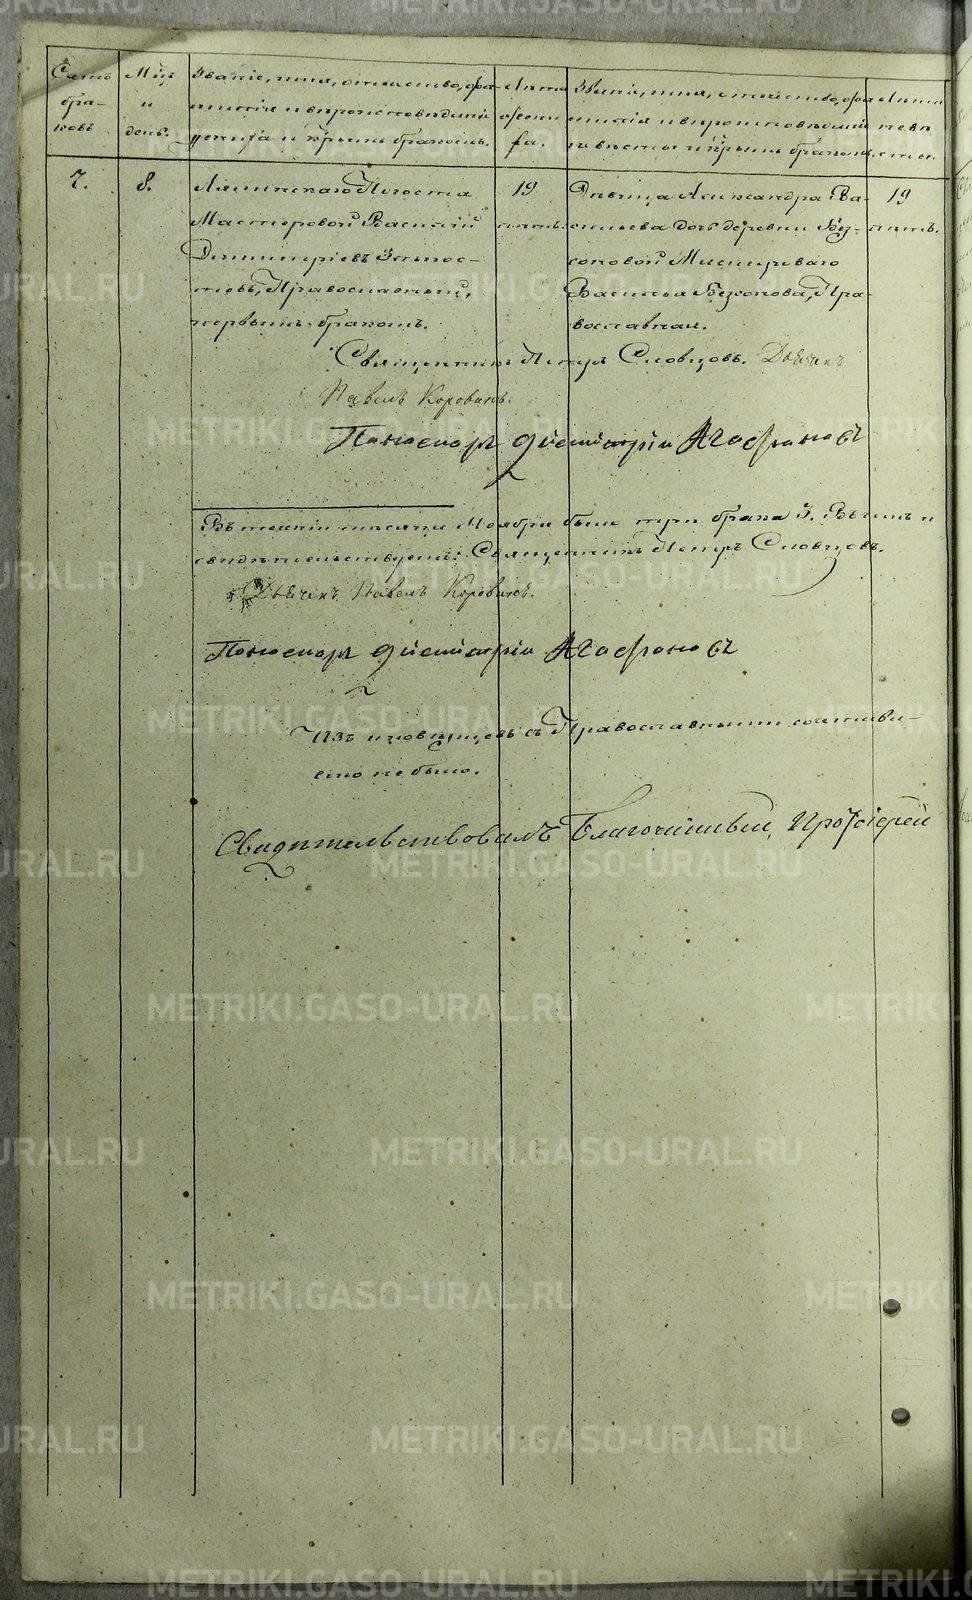 Счетъ
бра-
ковъ
Мцъ
и
день.
Званіе, имя, отчество, фа-
милія и вѣроисповѣданіе
жениха и коимъ бракомъ.
Лѣта
жени-
ха.
Званіе, имя, отчество, фа-
милія и вѣроисповѣданіе
невѣсты и коимъ бракомъ.
Лѣта
невѣ-
сты.
7.
8.
Лялинскаго Погоста
Мастеровой Василій
Димитріевъ
Православный,
первымъ бракомъ.
19
лѣтъ.
Дѣвица Александра Ва-
сильева дочь деревни Без-
соновой Мастероваго
Василья Безсонова, Пра-
вославная.
19
лѣтъ.
Священникъ Петръ Словцовъ. Дьячекъ
Павелъ Коровинъ.
Пономарь Димитрій Агафоновъ
Въ теченіи мѣсяца Ноября было три брака 3. Въ чемъ и
свидѣтельствуемъ: Священникъ Петръ Словцовъ.
Дьячекъ Павелъ Коровинъ.
Пономарь Димитрій Агафоновъ
Изъ иновѣрцевъ съ Православными сочтавае-
мо не было.
Свидѣтельствовалъ Благочинный, Протоіерей
METRIKI.GASO-URAL.RU